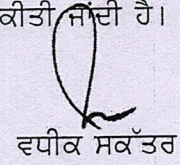 ਕੀਤੀ ਜਾਂਦੀ ਹੈ।
ਵਧੀਕ ਸਕੱਤਰ